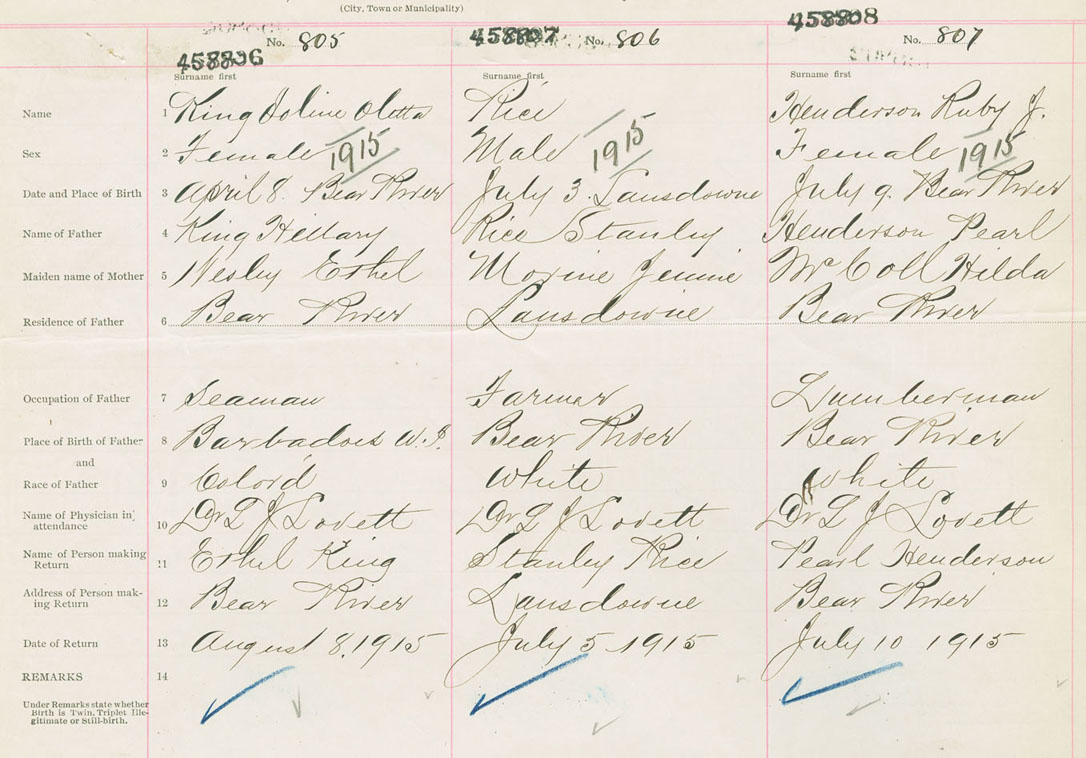 (City, Town or Municipality)
458806 No. 805 458807 No. 806 458808 No. 807
Surname first Surname first Surname first
Name 1 King Oletta Rice Henderson Ruby J.
Sex 2 Female 1915 Male 1915 Female 1915
Date and Place of Birth 3 April 8. Bear River July 3. Lansdowne July 9. Bear River
Name of Father 4 King Hillary Rice Stanley Henderson Pearl
Maiden name of Mother 5 Wesley Ethel Morine Jennie McColl Hilda
Residence of Father 6 Bear River Lansdowne Bear River
Occupation of Father 7 Seaman Farmer Lumberman
Place of Birth of Father 8 Barbadoes W.I. Bear River Bear River
and
Race of Father 9 Colord White White
Name of Physician in attendance 10 Dr L J Lovett Dr L J Lovett Dr L J Lovett
Name of Person making Return 11 Ethel King Stanley Rice Pearl Henderson
Address of Person making Return 12 Bear River Lansdowne Bear River
Date of Return 13 August 8, 1915 July 5 1915 July 10 1915
REMARKS 14
Under Remarks state whether
Birth is Twin, Triplet Ille-
gitimate or Still-birth.